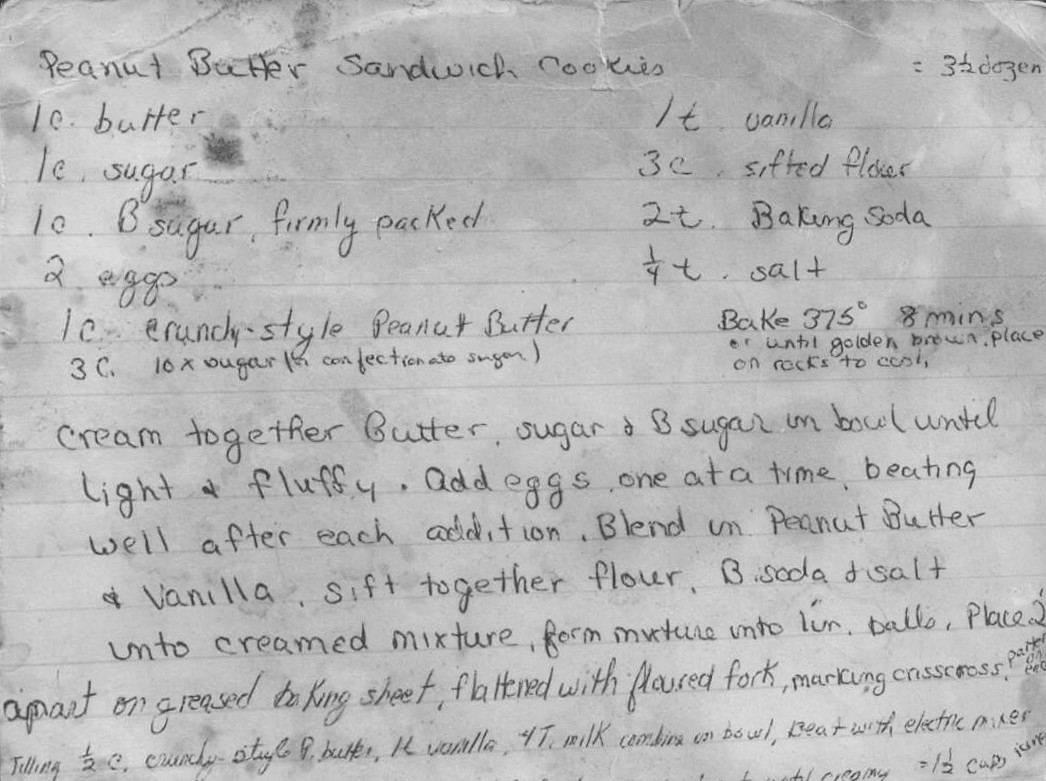 Peanut Butter Sandwich Cookies = 3½ dozen
1c. butter 1t vanilla
1c. sugar 3c. sifted flour
1c. B sugar, firmly packed 2t. Baking Soda
2 eggs ¼t. salt
1c. crunchy-style Peanut Butter Bake 375° 8 mins
3C. 10x sugar (or confectionato sugar) or until golden brown. place
on racks to cool,
Cream together Butter, sugar & B sugar in bowl until
light & fluffy. Add eggs, one at a time, beating
well after each addition. Blend in Peanut Butter
& Vanilla, sift together flour, B. soda & salt
into creamed mixture, form mixture into 1in. balls. Place 2
apart on greased baking sheet, flattened with floured fork, marking crisscross,
Filling ½ c. crunchy-style P. butter, 1t vanilla, 4T. milk combine in bowl, Beat with electric mixer
until creamy = 1½ cups